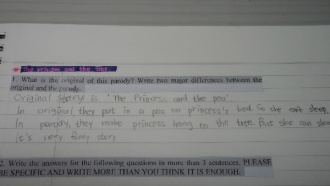 The princess and the tree.
1. What is the original of this parody? Write two major differences between the
original and the parody.
Original story is 'The Princess and the pea'.
In original they put in a pea on princess's bed. So she can't sleep.
In parody, they make princess hang on the tree. But she can sleep
It's very funny story
2. Write the answers for the following questions in more than 3 sentences. PLEASE
BE SPECIFIC AND WRITE MORE THAN YOU THINK IT IS ENOUGH.